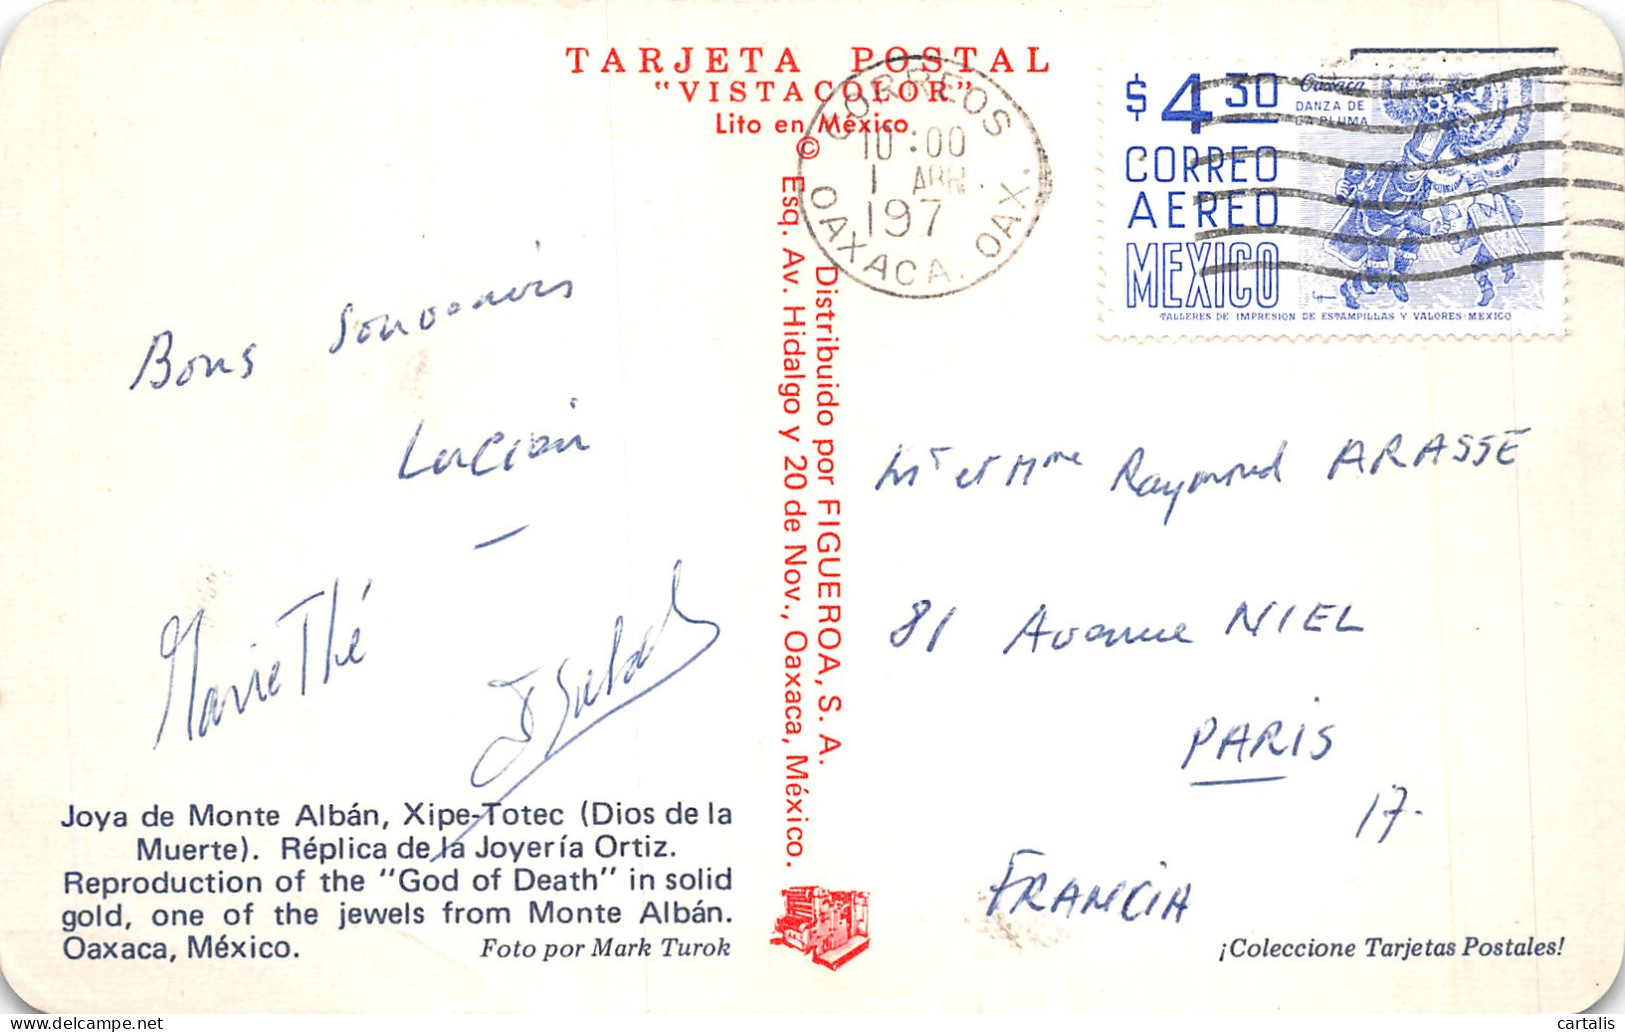 TARJETA POSTAL
"VISTACOLOR"
Lito en México
CORREOS
10:00
1 ABR.
197
OAXACA. OAX.
$4.30
CORREO
AEREO
MEXICO
Oaxaca
DANZA DE
LA PLUMA
TALLERES DE IMPRESION DE ESTAMPILLAS Y VALORES-MEXICO
Distribuido por FIGUEROA, S. A.
© Esq. Av. Hidalgo y 20 de Nov., Oaxaca, México.
Bons Souvenirs
Lucien
Marie Thé
Mr et Mme Raymond ARASSE
81 Avenue NIEL
PARIS
17.
FRANCIA
Joya de Monte Albán, Xipe-Totec (Dios de la
Muerte). Réplica de la Joyería Ortiz.
Reproduction of the "God of Death" in solid
gold, one of the jewels from Monte Albán.
Oaxaca, México.
Foto por Mark Turok
¡Coleccione Tarjetas Postales!
delcampe.net
cartalis